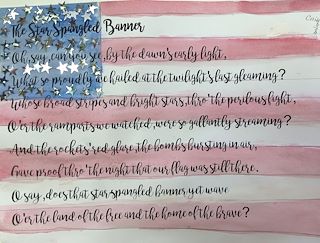 The Star Spangled Banner
Oh, say, can you see, by the dawn's early light,
What so proudly we hailed at the twilight's last gleaming?
Whose broad stripes and bright stars, thro' the perilous light,
O'er the ramparts we watched, were so gallantly streaming?
And the rockets' red glare, the bombs bursting in air,
Gave proof thro' the night that our flag was still there.
O say, does that star spangled banner yet wave
O'er the land of the free and the home of the brave?